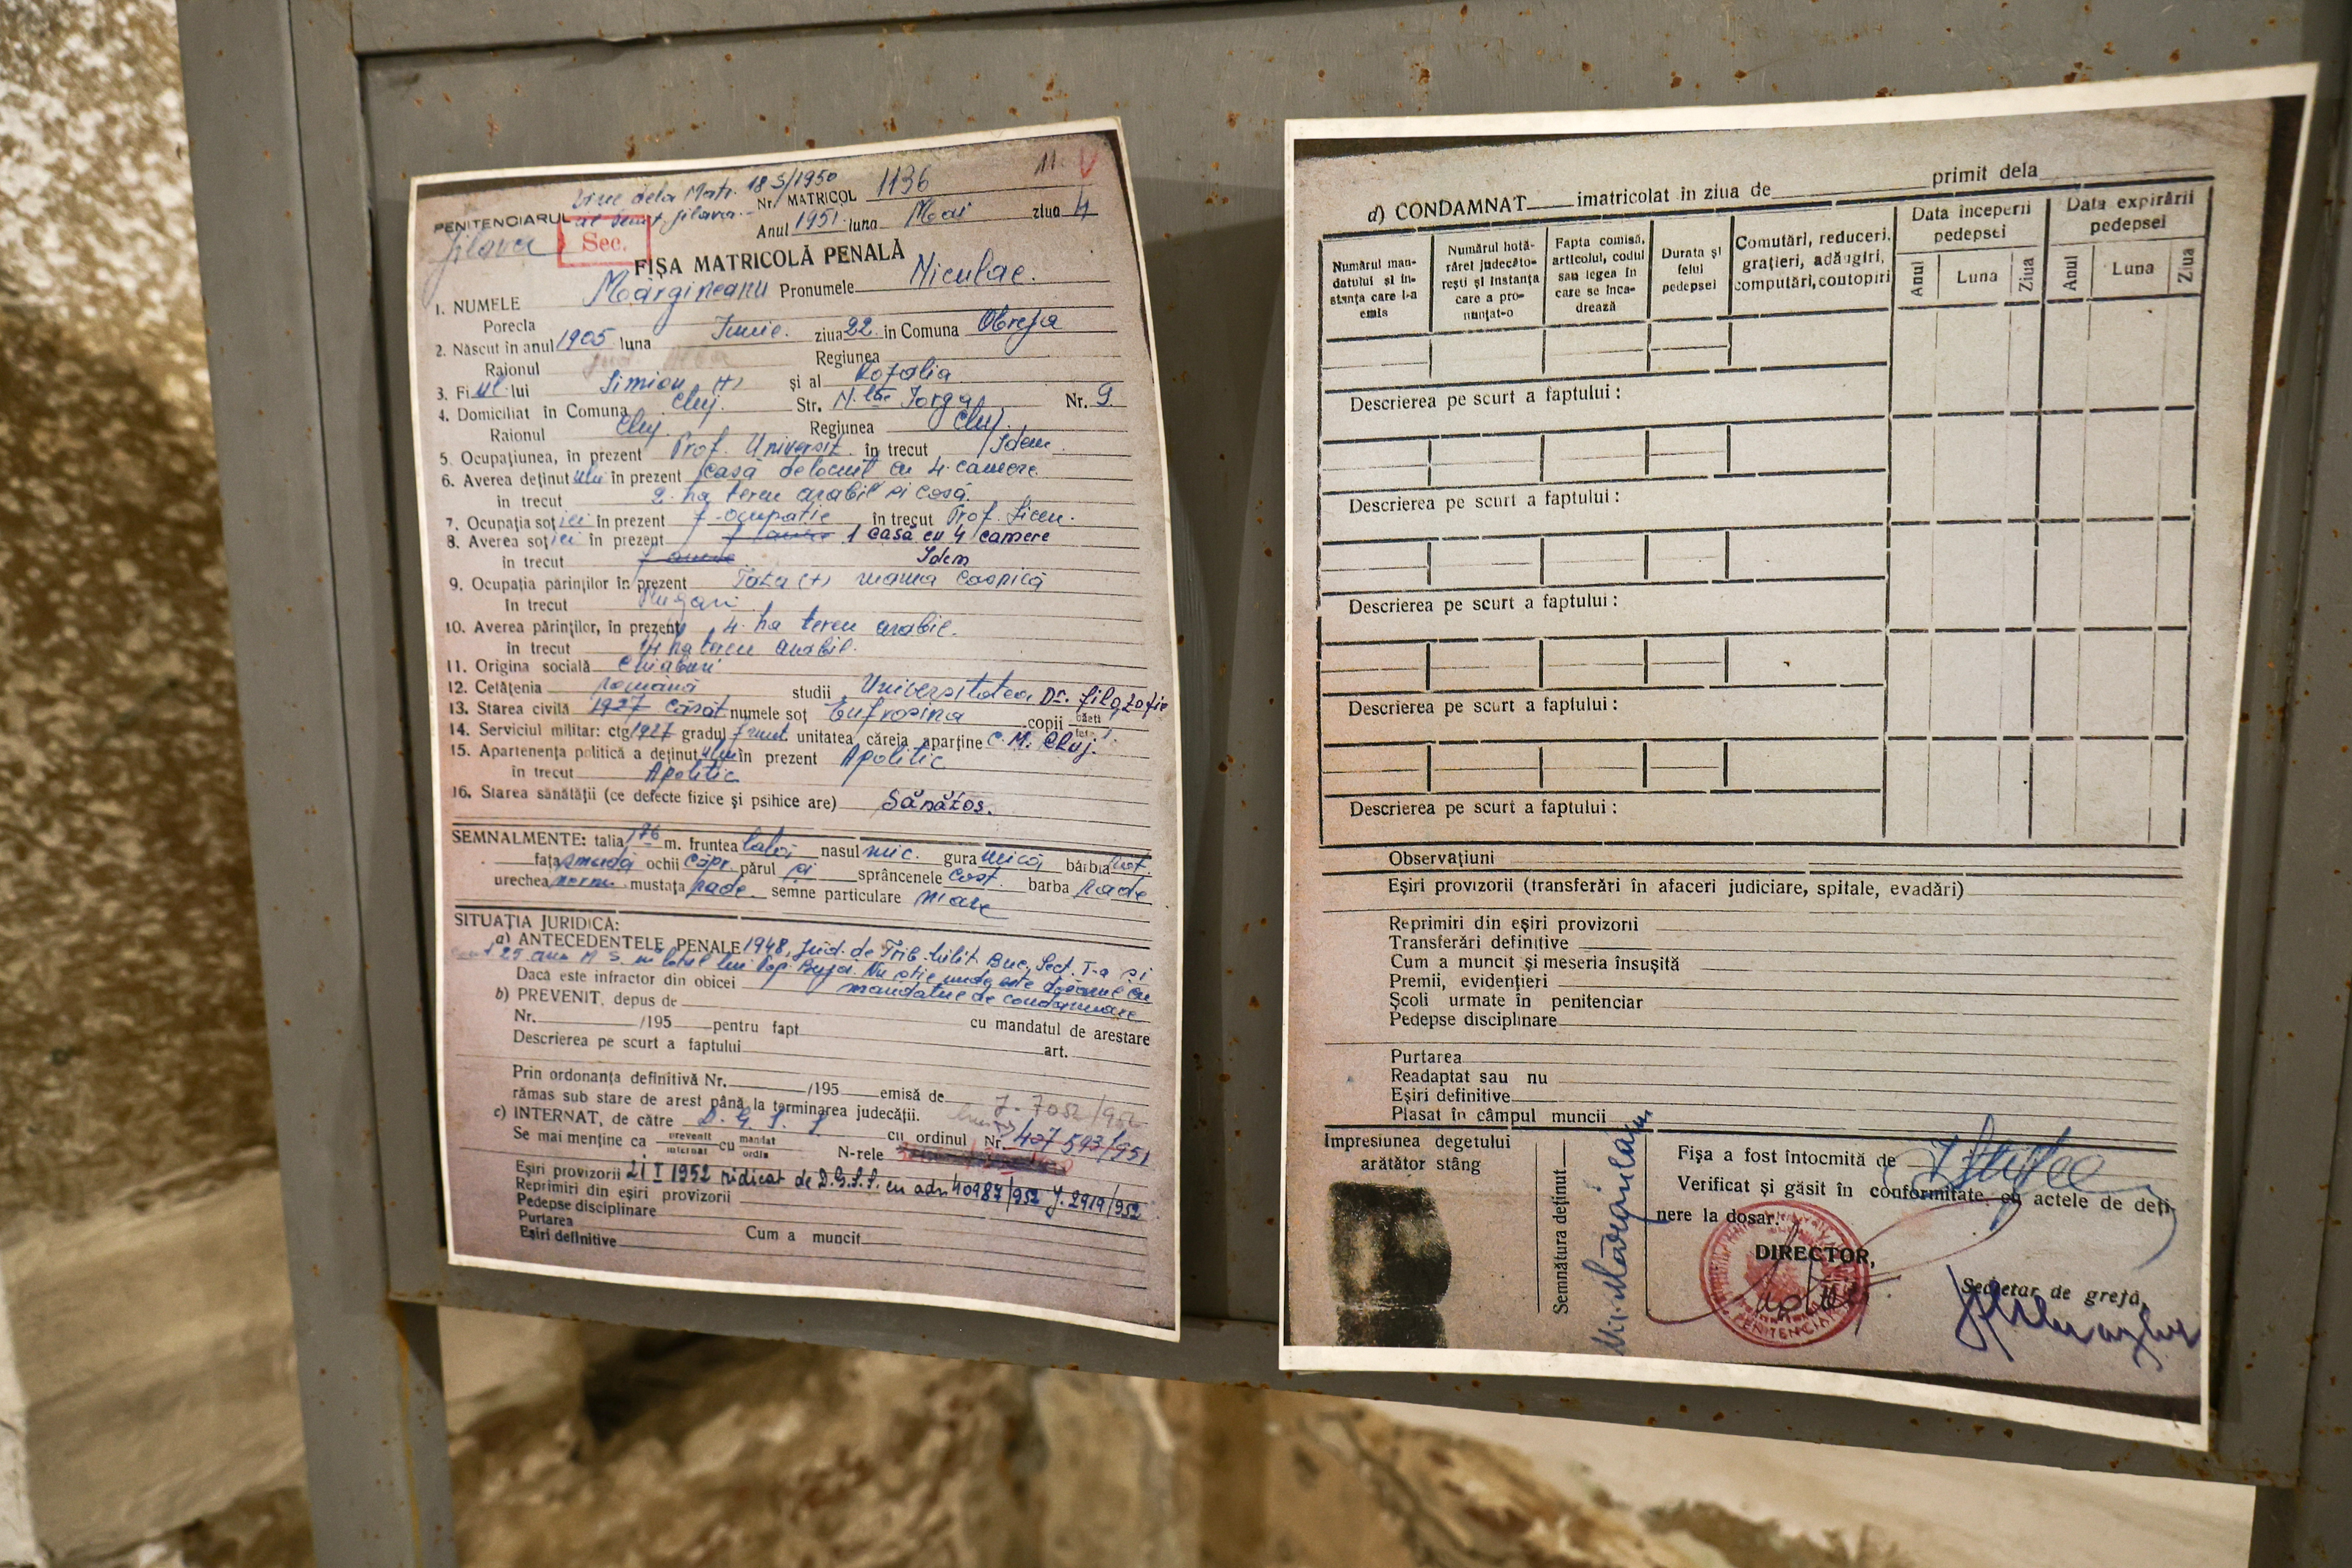 Vine dela Matr. 183/1950
Nr. MATRICOL 1136
11. V
PENITENCIARUL
Jilava
Sec.
Anul 1951 luna Mai ziua 4
FIȘA MATRICOLĂ PENALĂ
1. NUMELE Mărgineanu Pronumele Niculae.
Porecla
2. Născut în anul 1905 luna Iunie. ziua 22. in Comuna Obreja
Raionul Regiunea
3. Fiul lui Simion (+) și al Rozalia
4. Domiciliat în Comuna Cluj. Str. N. Iorga Nr. 9.
Raionul Cluj. Regiunea Cluj.
5. Ocupațiunea, în prezent Prof. Universit. în trecut Idem.
6. Averea deținutului în prezent casă de locuit cu 4. camere.
în trecut 2. ha teren arabil și casă.
7. Ocupația soției în prezent f. ocupatie în trecut Prof. Liceu.
8. Averea soției în prezent 1 casă cu 4 camere
în trecut Idem
9. Ocupația părinților în prezent Tata (+) mama casnică
în trecut Plugari
10. Averea părinților, în prezent 4. ha teren arabil.
în trecut 14 ha teren arabil.
11. Origina socială Chiaburi
12. Cetățenia Română studii Universitatea Dr. filozofie
13. Starea civilă căsăt numele soț Eufrosina copii
14. Serviciul militar: ctg 1927 gradul unitatea căreia aparține C. M. Cluj.
15. Apartenența politică a deținutului în prezent Apolitic
în trecut Apolitic
16. Starea sănătății (ce defecte fizice și psihice are) Sănătos.
SEMNALMENTE: talia 1,76 m. fruntea lată nasul mic. gura mică bărbia Rot.
fața smadă ochii căpr. părul sprâncenele cast. barba rade
urechea norm. mustața rade semne particulare niare
SITUAȚIA JURIDICĂ:
a) ANTECEDENTELE PENALE 1948, jud. de Trib. Milit Buc. Sect. I-a și
25 ani M S. în lotul lui Pop Bujoi. Nu știe unde este dosarul cu
Dacă este infractor din obicei mandatul de condamnare
b) PREVENIT, depus de
Nr. /195 pentru fapt cu mandatul de arestare
Descrierea pe scurt a faptului art.
Prin ordonanța definitivă Nr. /195 emisă de
rămas sub stare de arest până la terminarea judecății. J. 7052/952
c) INTERNAT, de către D. G. S. S cu ordinul Nr. 407 593/951
Se mai menține ca prevenit internat cu mandat ordin N-rele
Eșiri provizorii 21 I 1952 ridicat de D.G.S.S. cu adr. 40987/952 J. 2919/952
Reprimiri din eșiri provizorii
Pedepse disciplinare
Purtarea Cum a muncit
Eșiri definitive
d) CONDAMNAT imatricolat în ziua de primit dela
Numărul mandatului și instanța care l-a emis
Numărul hotărârei judecătorești și instanța care a pronunțat-o
Fapta comisă, articolul, codul sau legea în care se încadrează
Durata și felul pedepsei
Comutări, reduceri, grațieri, adăugiri, computări, coutopiri
Data începerii pedepsei
Data expirării pedepsei
Anul Luna Ziua Anul Luna Ziua
Descrierea pe scurt a faptului:
Descrierea pe scurt a faptului:
Descrierea pe scurt a faptului:
Descrierea pe scurt a faptului:
Descrierea pe scurt a faptului:
Observațiuni
Eșiri provizorii (transferări în afaceri judiciare, spitale, evadări)
Reprimiri din eșiri provizorii
Transferări definitive
Cum a muncit și meseria însușită
Premii, evidențieri
Școli urmate în penitenciar
Pedepse disciplinare
Purtarea
Readaptat sau nu
Eșiri definitive
Plasat în câmpul muncii
Impresiunea degetului
arătător stâng
Semnătura deținut
N. Mărgineanu
Fișa a fost întocmită de
Verificat și găsit în conformitate cu actele de deți-
nere la dosar.
DIRECTOR,
PENITENCIAR
Secretar de grefă,